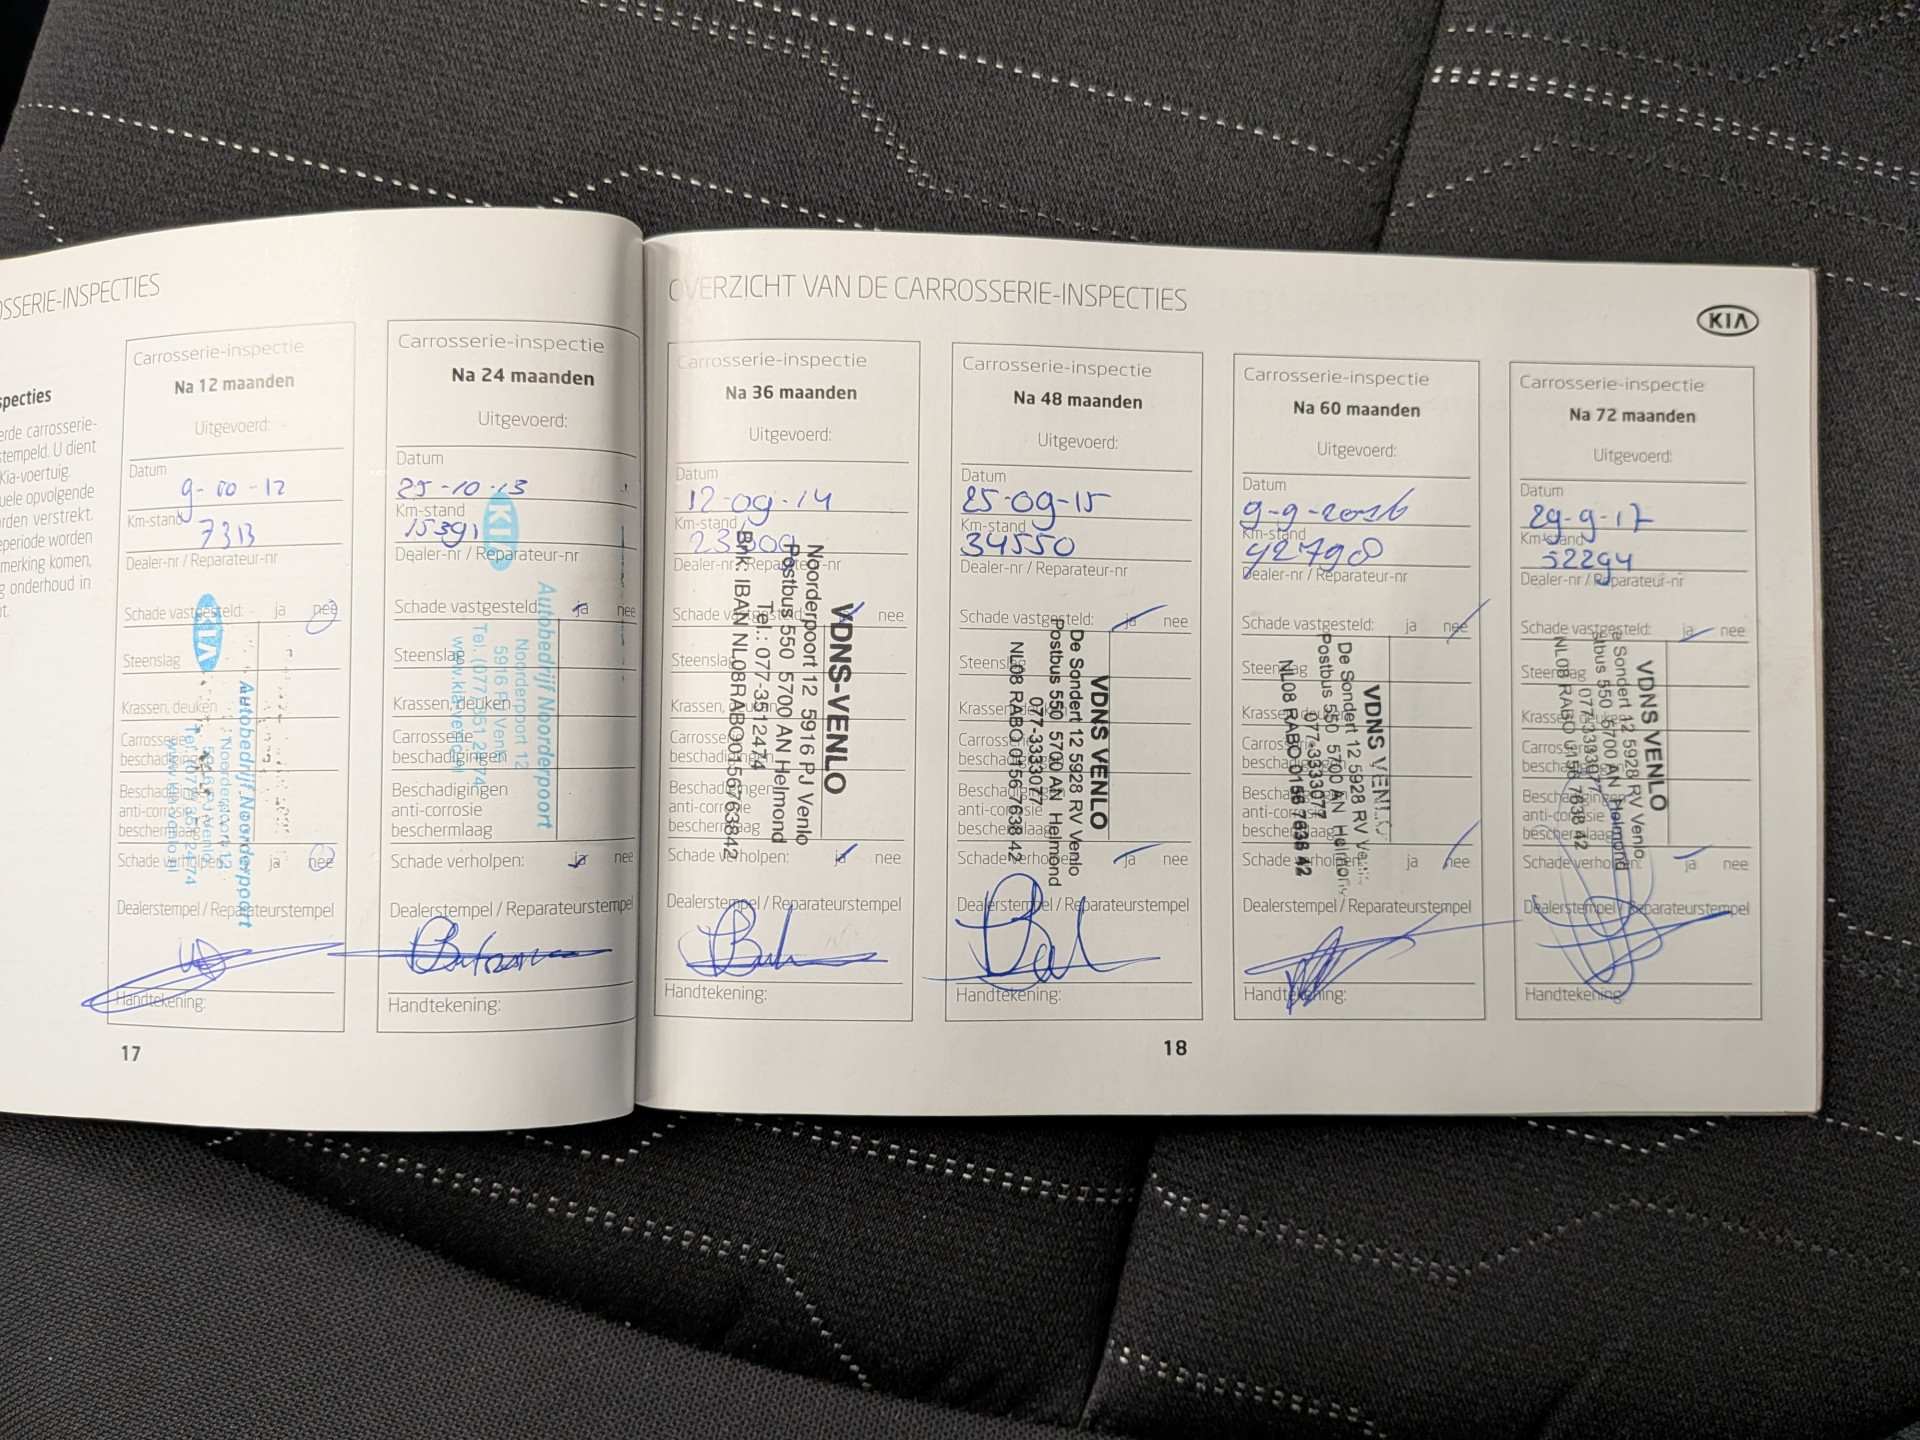 OSSERIE-INSPECTIES
specties
erde carrosserie-
stempeld. U dient
Kia-voertuig.
uele opvolgende
rden verstrekt.
eperiode worden
merking komen,
g onderhoud in
t.
Carrosserie-inspectie
Na 12 maanden
Uitgevoerd:
Datum
Km-stand
7313
Dealer-nr / Reparateur-nr
Schade vastgesteld: ja nee
Steenslag
Krassen, deuken
Carrosserie
beschadigingen
Beschadigingen
anti-corrosie
beschermlaag
Schade verholpen: ja nee
Dealerstempel / Reparateurstempel
Handtekening:
KIA
Autobedrijf Noorderpoort
Noorderpoort 12
5916 PJ Venlo
www.kiavenlo.nl
17
Carrosserie-inspectie
Na 24 maanden
Uitgevoerd:
Datum
25-10-13
Km-stand
15391
Dealer-nr / Reparateur-nr
Schade vastgesteld: ja nee
Steenslag
Krassen, deuken
Carrosserie
beschadigingen
Beschadigingen
anti-corrosie
beschermlaag
Schade verholpen: ja nee
Dealerstempel / Reparateurstempel
Handtekening:
KIA
Autobedrijf Noorderpoort
Noorderpoort 12
OVERZICHT VAN DE CARROSSERIE-INSPECTIES
KIA
Carrosserie-inspectie
Na 36 maanden
Uitgevoerd:
Datum
12-09-14
Km-stand
Dealer-nr / Reparateur-nr
Schade vastgesteld: ja nee
Steenslag
Krassen, deuken
Carrosserie
beschadigingen
Beschadigingen
anti-corrosie
beschermlaag
Schade verholpen: ja nee
Dealerstempel / Reparateurstempel
Handtekening:
VDNS-VENLO
Noorderpoort 12 5916 PJ Venlo
Postbus 550 5700 AN Helmond
Tel.: 077-3512474
Bnk: IBAN NL08RABO0156763842
Carrosserie-inspectie
Na 48 maanden
Uitgevoerd:
Datum
25-09-15
Km-stand
34550
Dealer-nr / Reparateur-nr
Schade vastgesteld: ja nee
Steenslag
Krassen, deuken
Carrosserie
beschadigingen
Beschadigingen
anti-corrosie
beschermlaag
Schade verholpen: ja nee
Dealerstempel / Reparateurstempel
Handtekening:
VDNS VENLO
De Sondert 12 5928 RV Venlo
Postbus 550 5700 AN Helmond
077-3333077
NL08 RABO 0156 7638 42
Carrosserie-inspectie
Na 60 maanden
Uitgevoerd:
Datum
9-9-2016
Km-stand
42798
Dealer-nr / Reparateur-nr
Schade vastgesteld: ja nee
Steenslag
Krassen, deuken
Carrosserie
beschadigingen
Beschadigingen
anti-corrosie
beschermlaag
Schade verholpen: ja nee
Dealerstempel / Reparateurstempel
Handtekening:
VDNS VENLO
De Sondert 12 5928 RV Venlo
Postbus 550 5700 AN Helmond
077-3333077
NL08 RABO 0156 7638 42
Carrosserie-inspectie
Na 72 maanden
Uitgevoerd:
Datum
29-9-17
Km-stand
52294
Dealer-nr / Reparateur-nr
Schade vastgesteld: ja nee
Steenslag
Krassen, deuken
Carrosserie
beschadigingen
Beschadigingen
anti-corrosie
beschermlaag
Schade verholpen: ja nee
Dealerstempel / Reparateurstempel
Handtekening:
VDNS VENLO
e Sondert 12 5928 RV Venlo
stbus 550 5700 AN Helmond
077-3333077
NL08 RABO 0156 7638 42
18